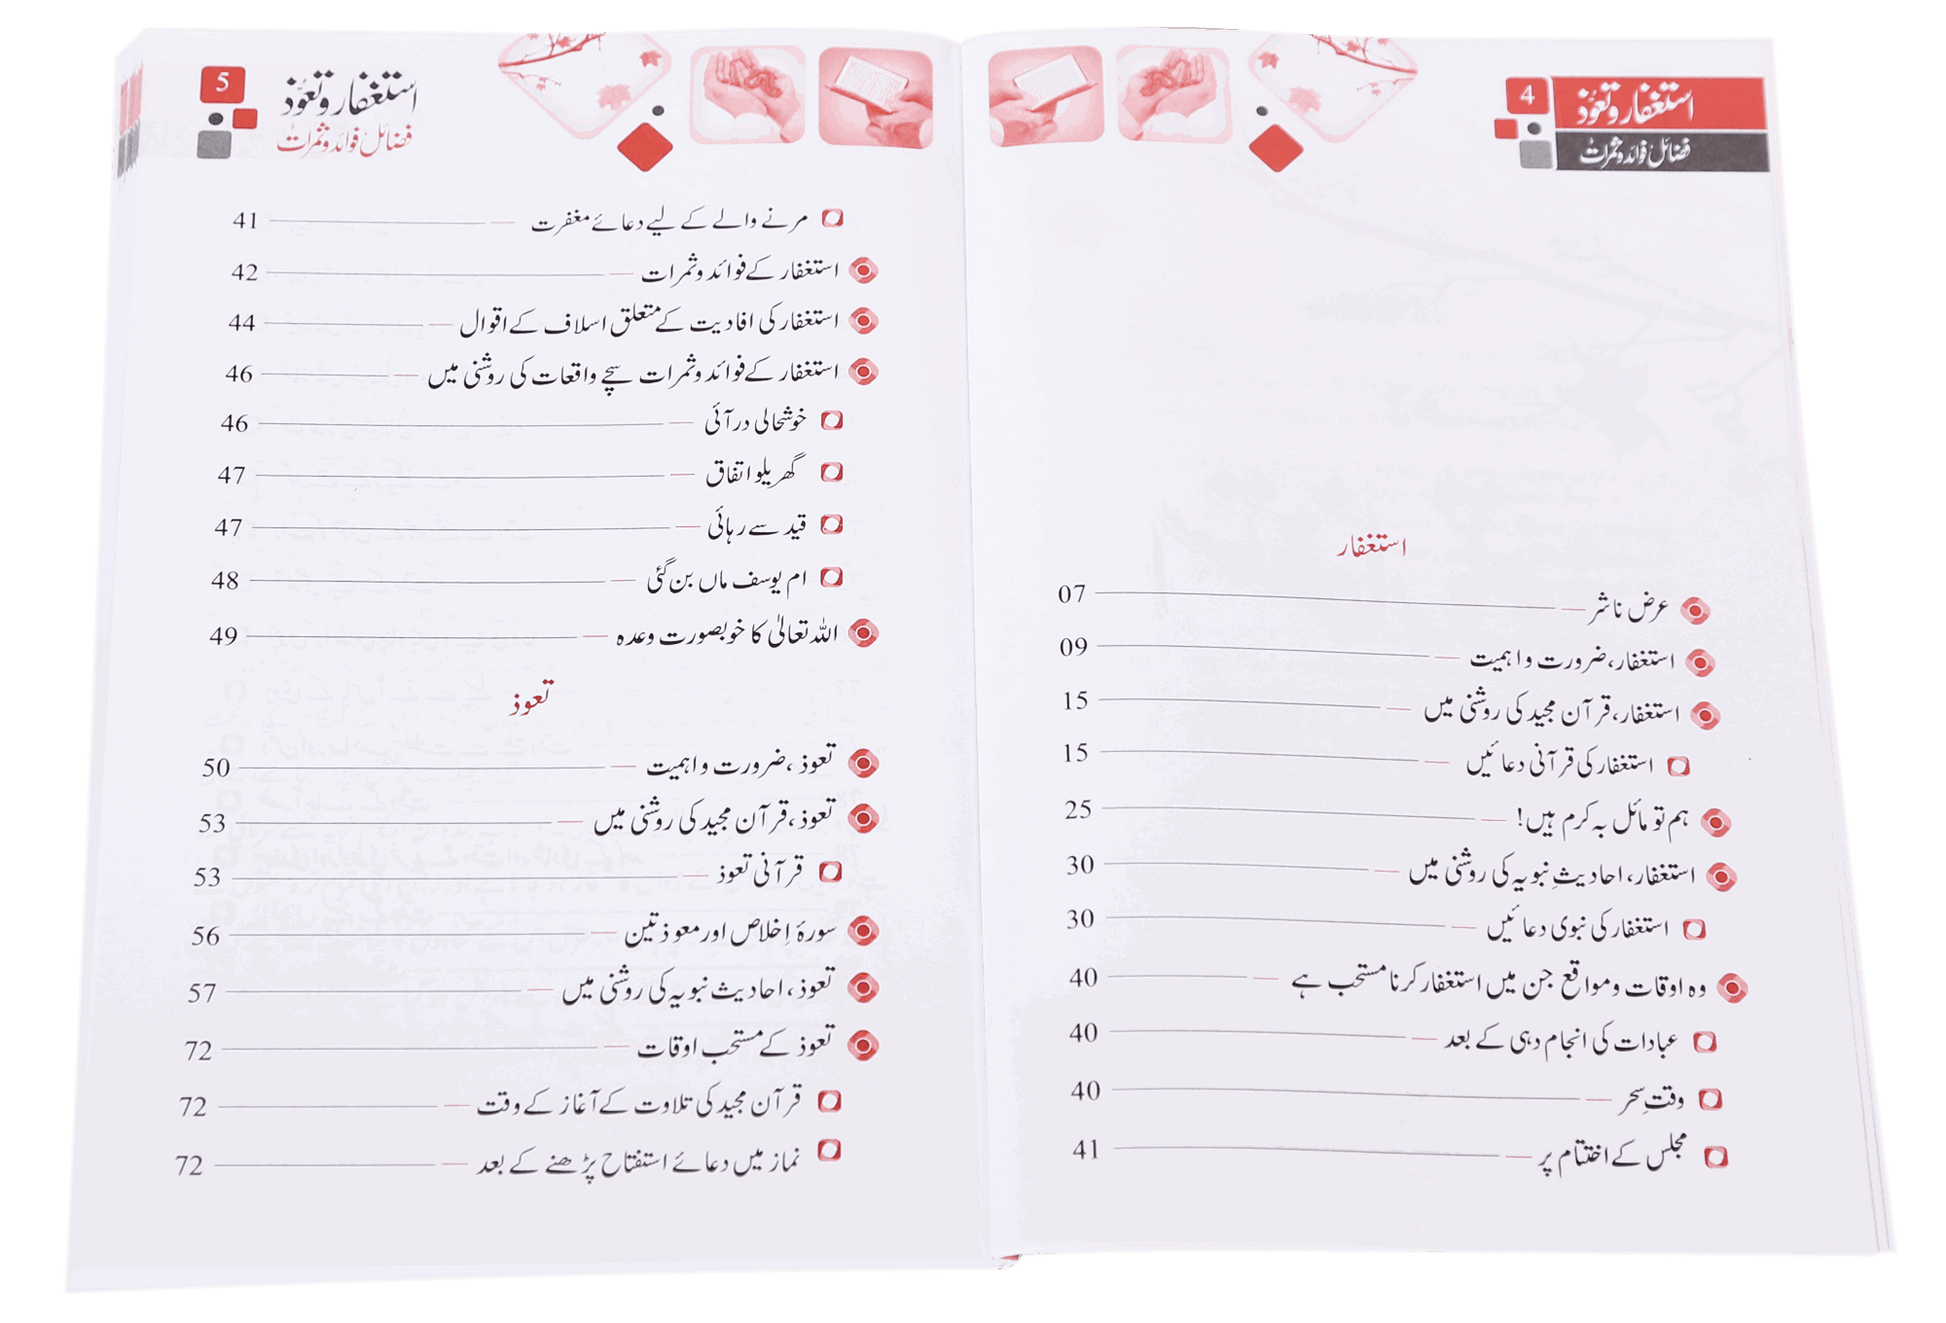 4
استغفار و تعوّذ
فضائل فوائد و ثمرات
استغفار
عرض ناشر 07
استغفار، ضرورت و اہمیت 09
استغفار، قرآن مجید کی روشنی میں 15
استغفار کی قرآنی دعائیں 15
ہم تو مائل بہ کرم ہیں! 25
استغفار، احادیثِ نبویہ کی روشنی میں 30
استغفار کی نبوی دعائیں 30
وہ اوقات و مواقع جن میں استغفار کرنا مستحب ہے 40
عبادات کی انجام دہی کے بعد 40
وقتِ سحر 40
مجلس کے اختتام پر 41
5
استغفار و تعوّذ
فضائل فوائد و ثمرات
مرنے والے کے لیے دعائے مغفرت 41
استغفار کے فوائد و ثمرات 42
استغفار کی افادیت کے متعلق اسلاف کے اقوال 44
استغفار کے فوائد و ثمرات سچے واقعات کی روشنی میں 46
خوشحالی در آئی 46
گھریلو اتفاق 47
قید سے رہائی 47
ام یوسف ماں بن گئی 48
اللہ تعالیٰ کا خوبصورت وعدہ 49
تعوذ
تعوذ، ضرورت و اہمیت 50
تعوذ، قرآن مجید کی روشنی میں 53
قرآنی تعوذ 53
سورۂ اِخلاص اور معوذتین 56
تعوذ، احادیث نبویہ کی روشنی میں 57
تعوذ کے مستحب اوقات 72
قرآن مجید کی تلاوت کے آغاز کے وقت 72
نماز میں دعائے استفتاح پڑھنے کے بعد 72